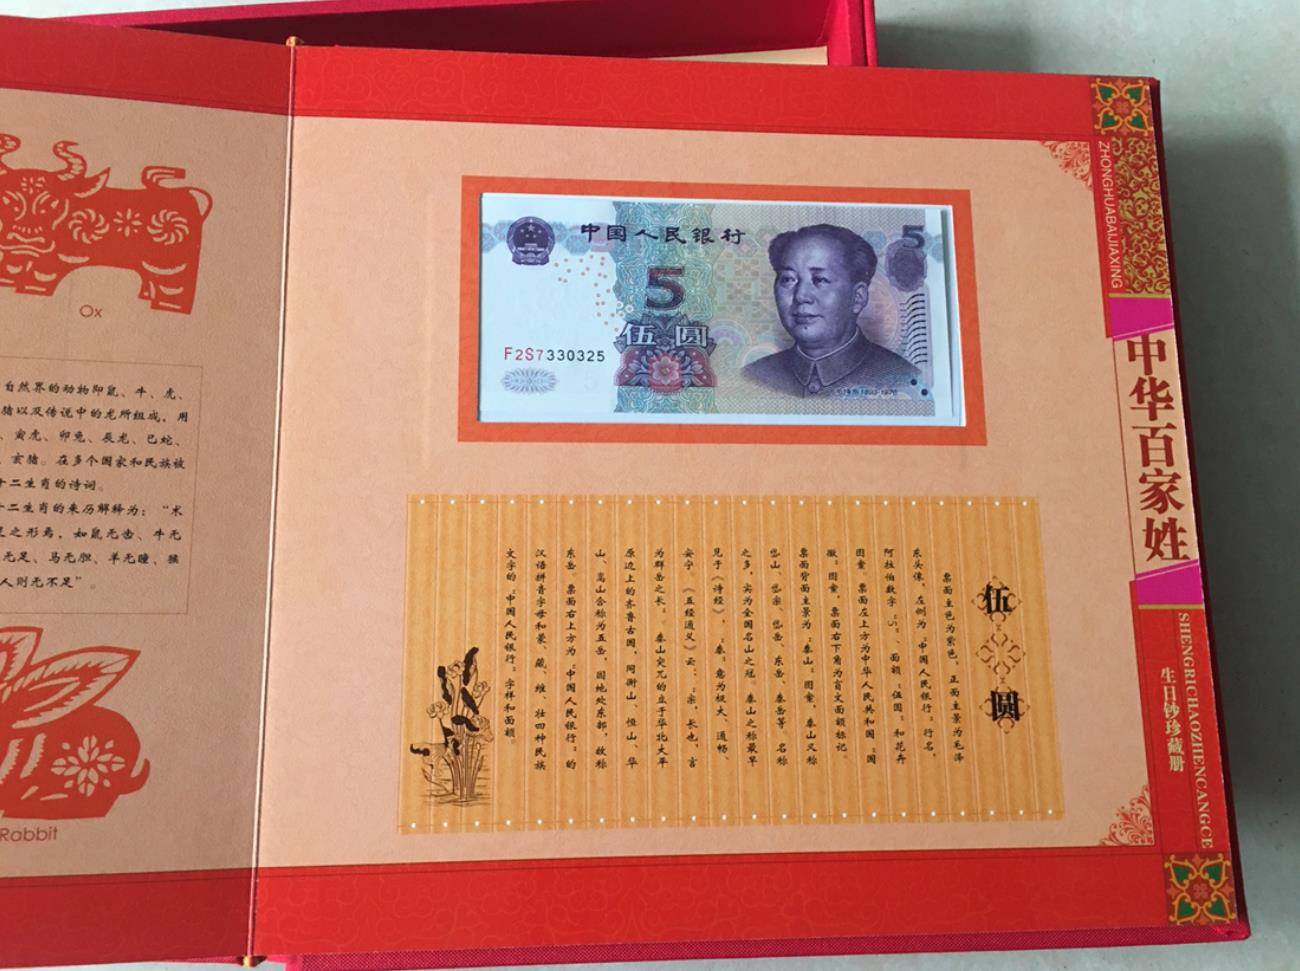 Ox
自然界的动物即鼠、牛、虎、
猪以及传说中的龙所组成，用
、寅虎、卯兔、辰龙、巳蛇、
、亥猪。在多个国家和民族被
十二生肖的诗词。
十二生肖的来历解释为：“术
足之形焉，如鼠无齿、牛无
无足、马无胆、羊无瞳、猴
人则无不足”。
Rabbit
中国人民银行
5
5
伍圆
F2S7330325
伍圆
票面主色为紫色，正面主景为毛泽
东头像，左侧为“中国人民银行”行名，
阿拉伯数字“5”、面额“伍圆”和花卉
图案，票面左上方为中华人民共和国“国
徽”图案，票面右下角为盲文面额标记。
票面背面主景为“泰山”图案，泰山又称
岱山、岱宗、岱岳、东岳、泰岳等，名称
之多，实为全国名山之冠。泰山之称最早
见于《诗经》，“泰”意为极大、通畅、
安宁。《五经通义》云：“宗，长也，言
为群岳之长”。泰山突兀的立于华北大平
原边上的齐鲁古国，同衡山、恒山、华
山、嵩山合称为五岳，因地处东部，故称
东岳。票面右上方为“中国人民银行”的
汉语拼音字母和蒙、藏、维、壮四种民族
文字的“中国人民银行”字样和面额。
ZHONGHUABAIJIAXING
中华百家姓
SHENGRICHAOZHENCANGCE
生日钞珍藏册